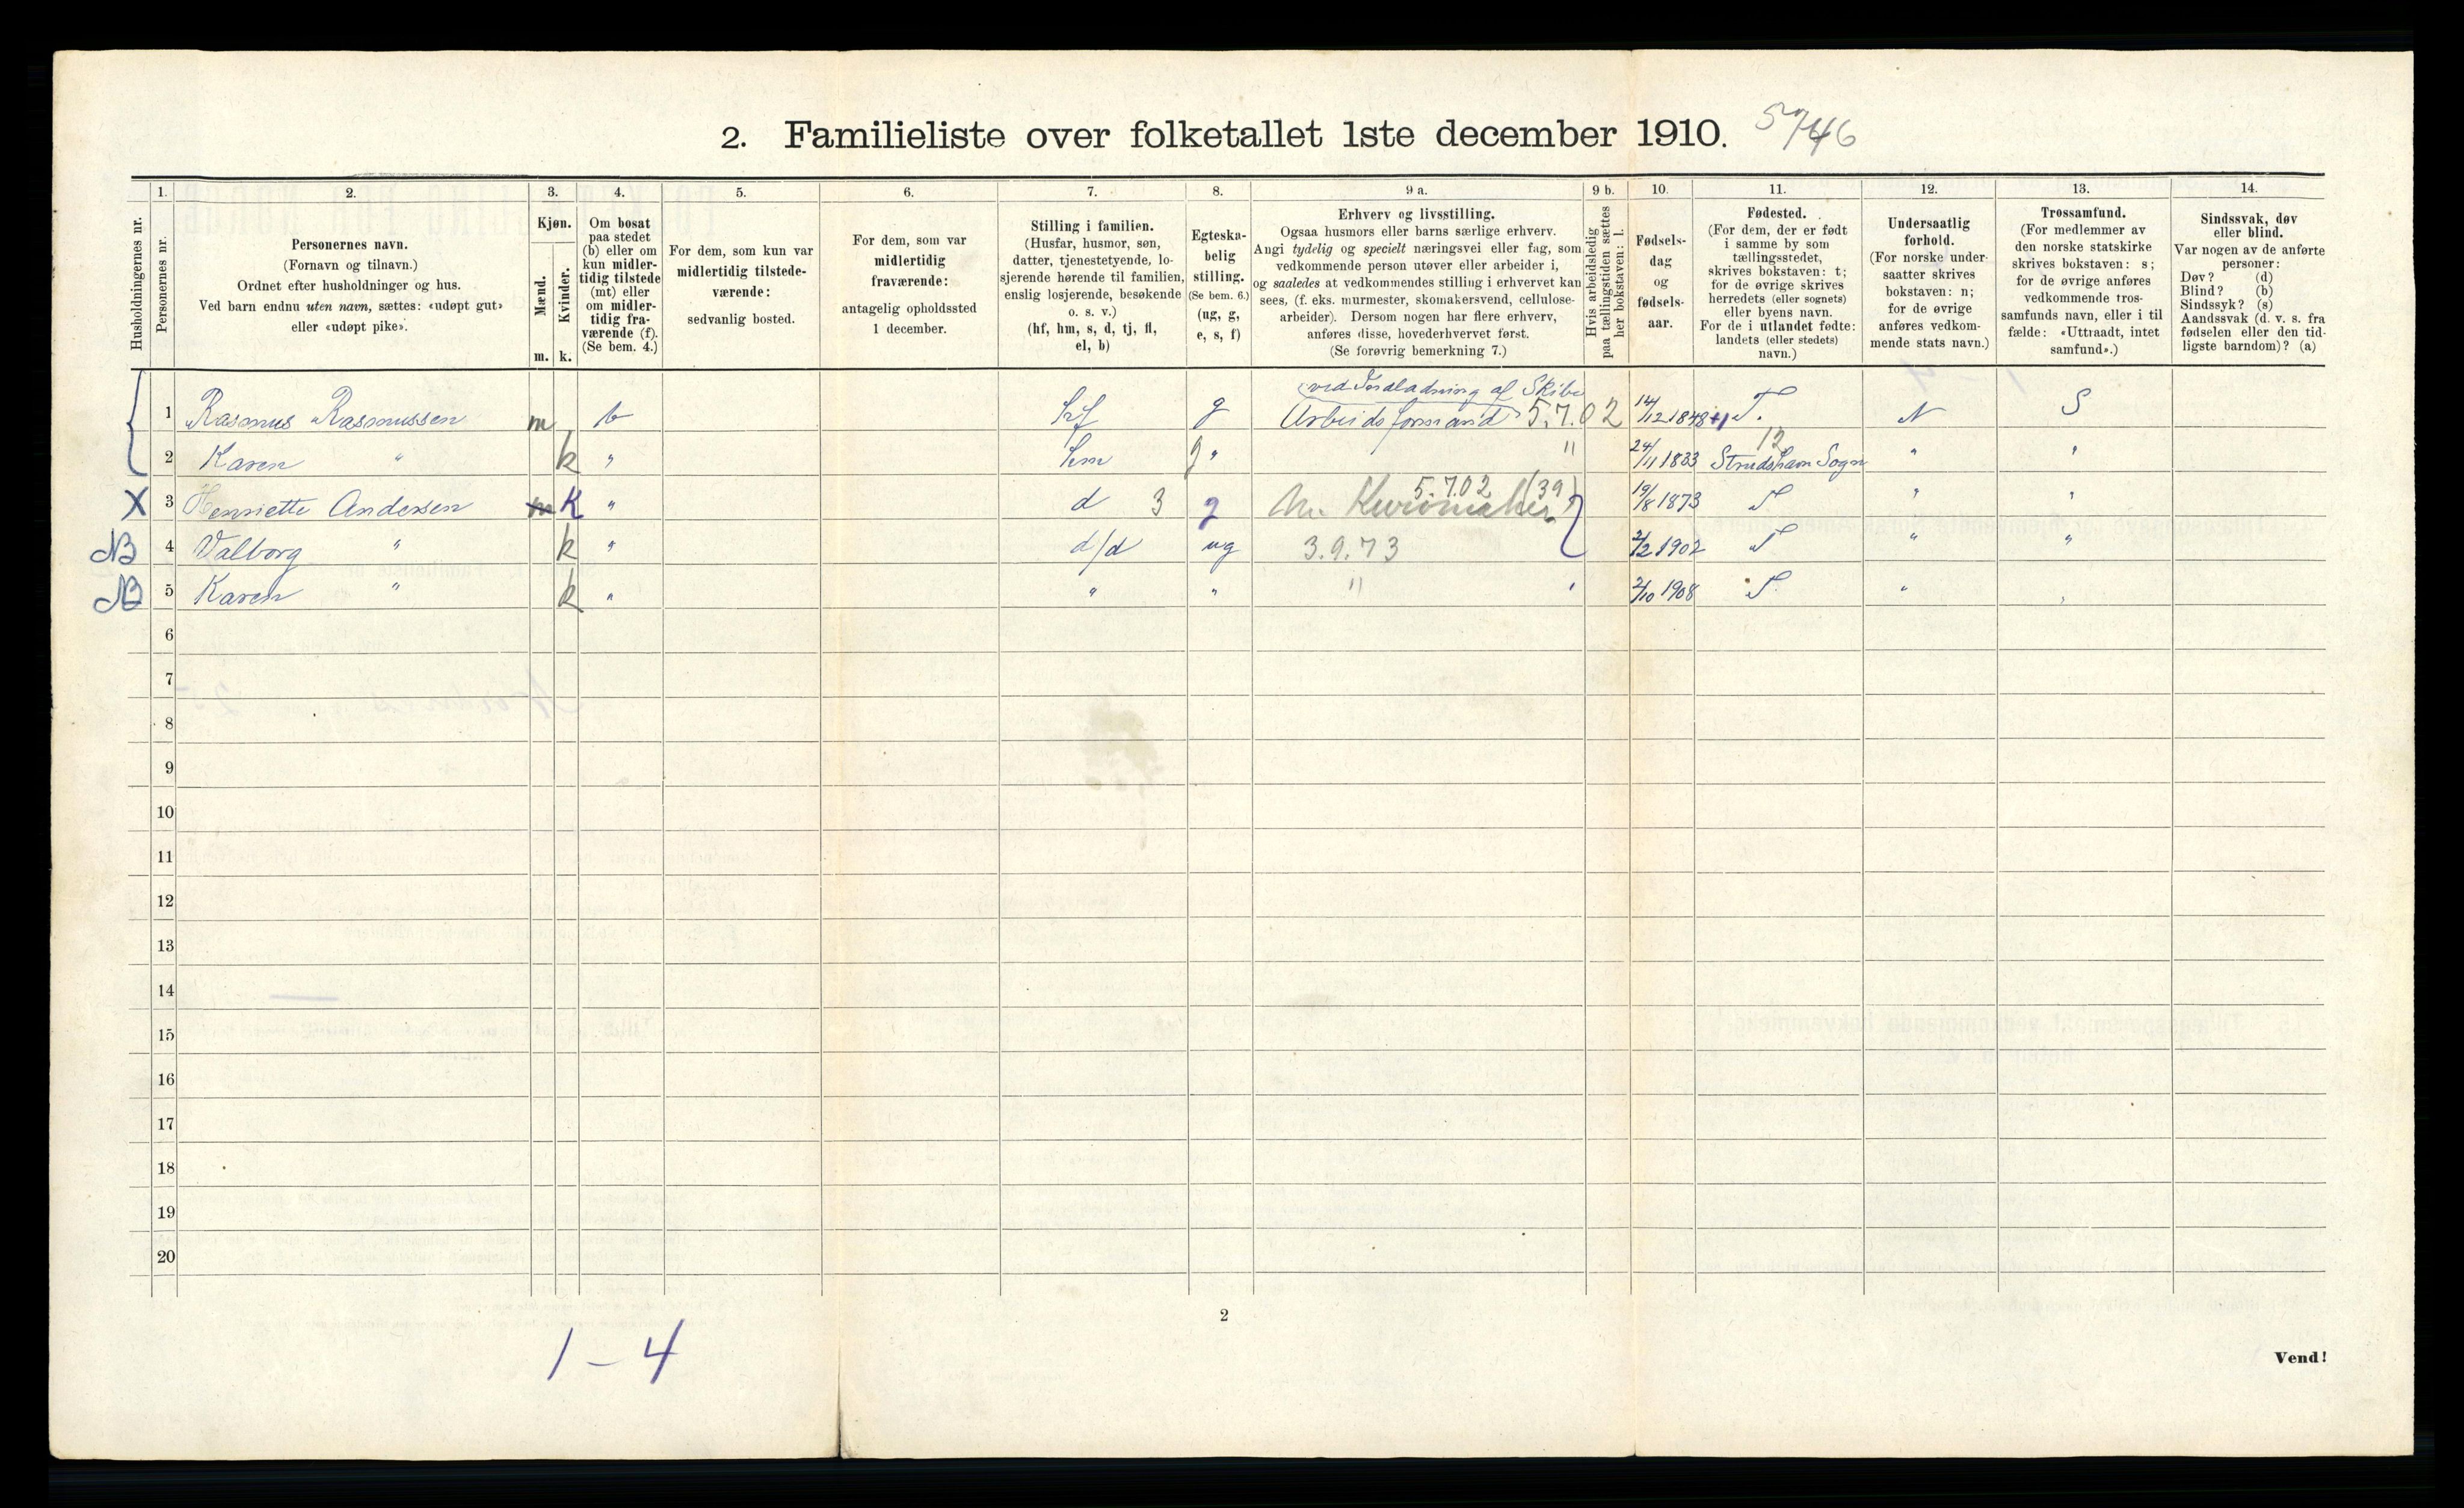 2. Familieliste over folketallet 1ste december 1910. 5746
1. 2. 3. 4. 5. 6. 7. 8. 9 a. 9 b. 10. 11. 12. 13. 14.
Husholdningernes nr.
Personernes nr.
Personernes navn.
(Fornavn og tilnavn.)
Ordnet efter husholdninger og hus.
Ved barn endnu uten navn, sættes: «udøpt gut»
eller «udøpt pike».
Kjøn.
Mænd.
Kvinder.
m. k.
Om bosat
paa stedet
(b) eller om
kun midler-
tidig tilstede
(mt) eller
om midler-
tidig fra-
værende (f).
(Se bem. 4.)
For dem, som kun var
midlertidig tilstede-
værende:
sedvanlig bosted.
For dem, som var
midlertidig
fraværende:
antagelig opholdssted
1 december.
Stilling i familien.
(Husfar, husmor, søn,
datter, tjenestetyende, lo-
sjerende hørende til familien,
enslig losjerende, besøkende
o. s. v.)
(hf, hm, s, d, tj, fl,
el, b)
Egteska-
belig
stilling.
(Se bem. 6.)
(ug, g,
e, s, f)
Erhverv og livsstilling.
Ogsaa husmors eller barns særlige erhverv.
Angi tydelig og specielt næringsvei eller fag, som
vedkommende person utøver eller arbeider i,
og saaledes at vedkommendes stilling i erhvervet kan
sees, (f. eks. murmester, skomakersvend, cellulose-
arbeider). Dersom nogen har flere erhverv,
anføres disse, hovederhvervet først.
(Se forøvrig bemerkning 7.)
Hvis arbeidsledig
paa tællingstiden sættes
her bokstaven: l.
Fødsels-
dag
og
fødsels-
aar.
Fødested.
(For dem, der er født
i samme by som
tællingsstedet,
skrives bokstaven: t;
for de øvrige skrives
herredets (eller sognets)
eller byens navn.
For de i utlandet fødte:
landets (eller stedets)
navn.)
Undersaatlig
forhold.
(For norske under-
saatter skrives
bokstaven: n;
for de øvrige
anføres vedkom-
mende stats navn.)
Trossamfund.
(For medlemmer av
den norske statskirke
skrives bokstaven: s;
for de øvrige anføres
vedkommende tros-
samfunds navn, eller i til
fælde: «Uttraadt, intet
samfund».)
Sindssvak, døv
eller blind.
Var nogen av de anførte
personer:
Døv? (d)
Blind? (b)
Sindssyk? (s)
Aandssvak (d. v. s. fra
fødselen eller den tid-
ligste barndom)? (a)
ved Indladning af Skibe
1 Rasmus Rasmussen m b hf g Arbeidsformand 5.7.02 14/12 1848 T. N S
12
2 Karen " k " hm g " " 24/11 1833 Sogn " "
5.702 (39)
X 3 Henriette Andersen m K " d 3 g 19/8 1873 T " "
NB 4 Valborg " k " d/d ug 3.9.73 2/2 1902 T " "
NB 5 Karen " k " " " " " 2/10 1908 T. " "
6
7
8
9
10
11
12
13
14
15
16
17
18
19
20
2
1 – 4
Vend!